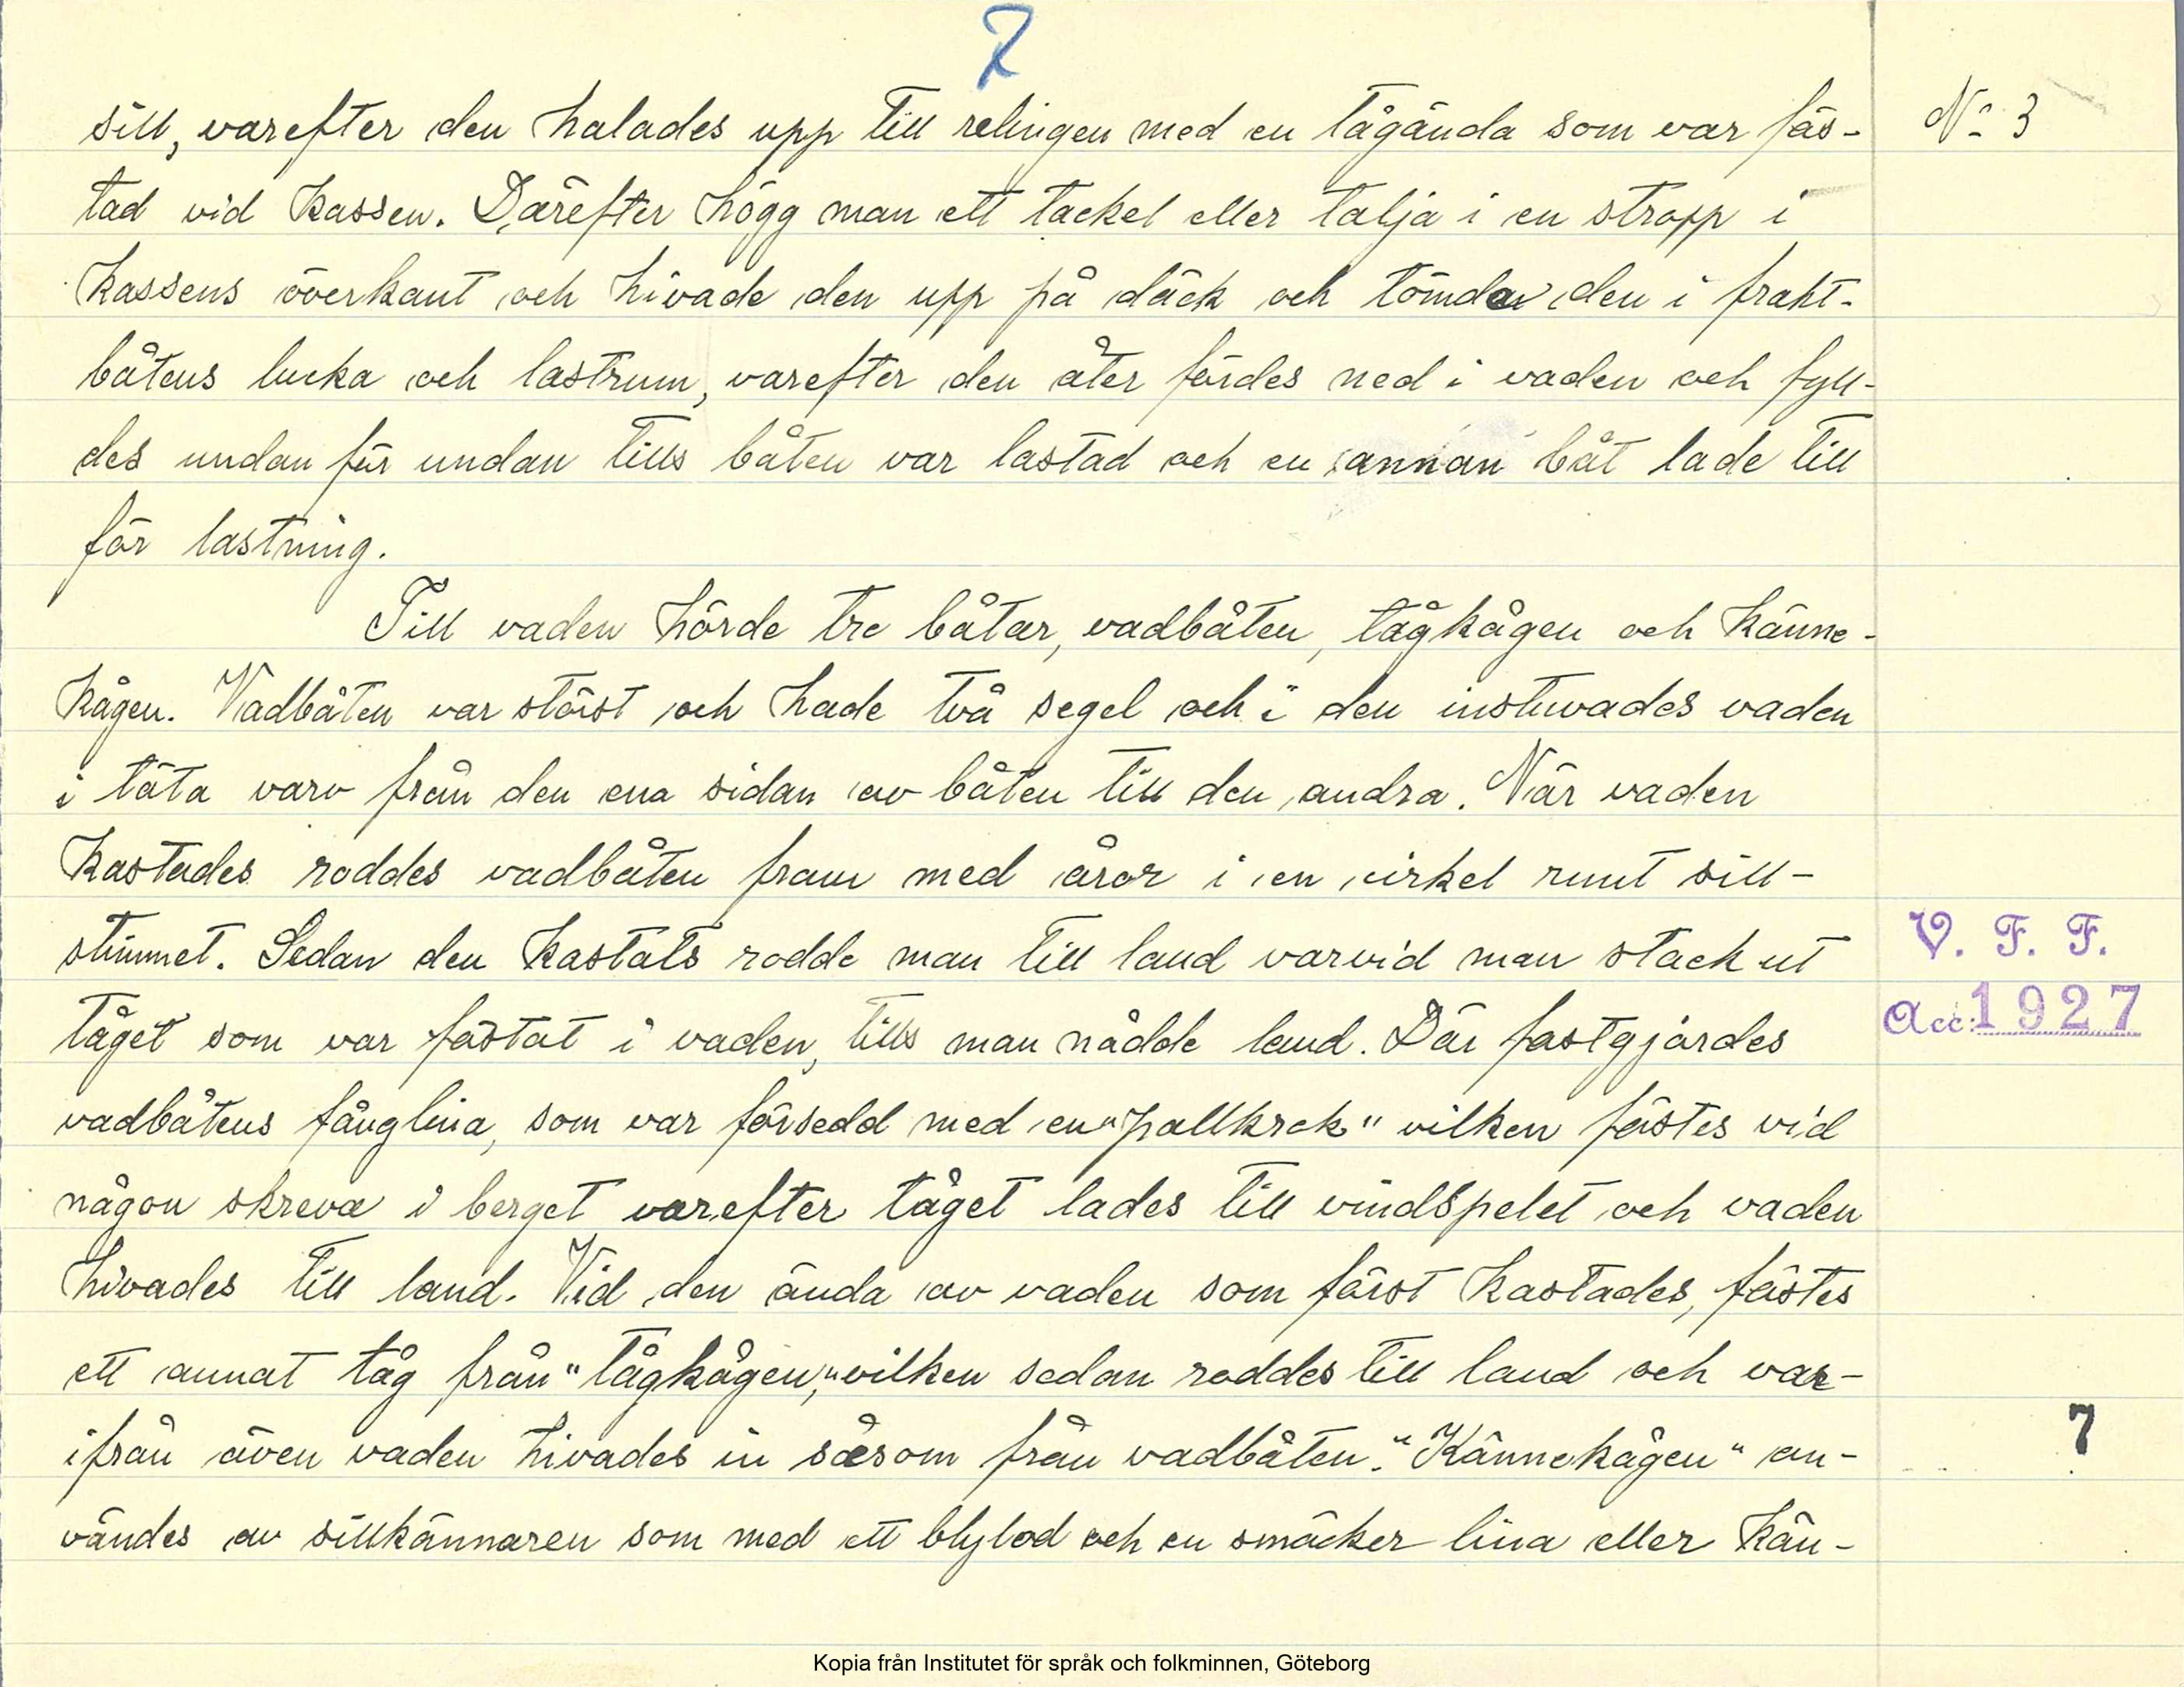 7
sill, varefter den halades upp till relingen med en tågända som var fäs-
N:o 3
tad vid kassen. Därefter högg man ett tackel eller talja i en stropp i
kassens överkant och hivade den upp på däck och tömdes den i frakt-
båtens lucka och lastrum, varefter den åter fördes ned i vaden och fyll-
des undan för undan tills båten var lastad och en annan båt lade till
för lastning.
Till vaden hörde tre båtar, vadbåten, tågkågen och känne-
kågen. Vadbåten var störst och hade två segel och i den instuvades vaden
i täta varv från den ena sidan av båten till den andra. När vaden
kastades roddes vadbåten fram med åror i en cirkel runt sill-
stimmet. Sedan den kastats rodde man till land varvid man stack ut
V. F. F.
tåget som var fästat i vaden, tills man nådde land. Där fastgjärdes
Acc: 1927
vadbåtens fånglina, som var försedd med en "pallkrek" vilken fästes vid
någon skreva i berget varefter tåget lades till vindspelet och vaden
hivades till land. Vid den ända av vaden som först kastades, fästes
ett annat tåg från "tågkågen," vilken sedan roddes till land och var-
ifrån även vaden hivades in såsom från vadbåten. "Kännekågen" an-
7
vändes av sillkännaren som med ett blylod och en smäcker lina eller kän-
Kopia från Institutet för språk och folkminnen, Göteborg